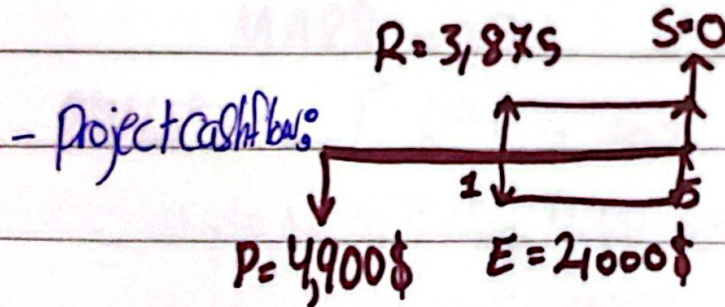 R=3,875 S=0
- Project cashflow:
1 5
P=4,900$ E=2,000$